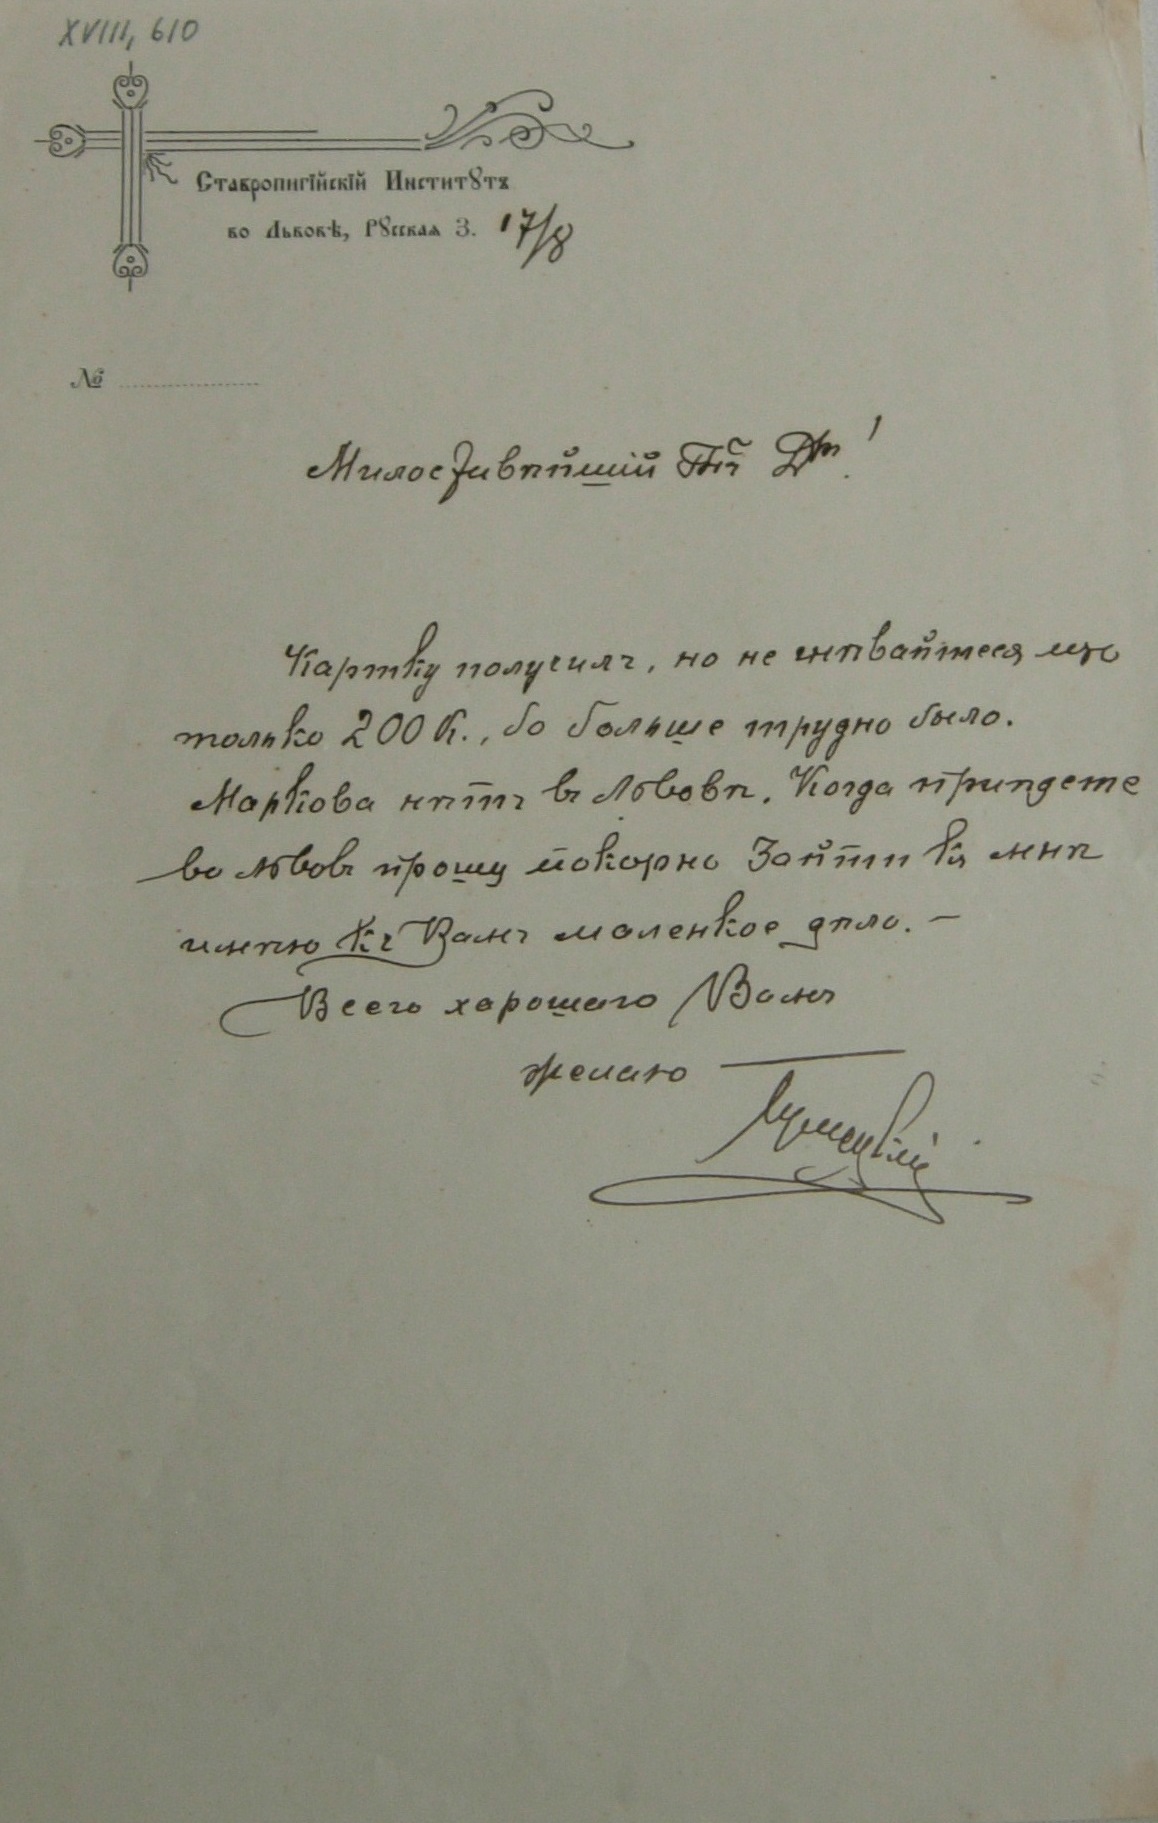 XVIII, 610
Ставропигійскій Инститꙋтъ
во Львовѣ, Рꙋсскаѧ 3. 17/8
№
Милостивѣйшій Пн Др!
Картку получилъ, но не гнѣвайтеся що
только 200 К., бо больше трудно было.
Маркова нѣтъ въ Львовѣ. Когда пріидете
во Львовъ прошу покорно зайти къ мнѣ
имѣю къ Вамъ маленкое дѣло. —
Всего хорошаго Вамъ
желаю